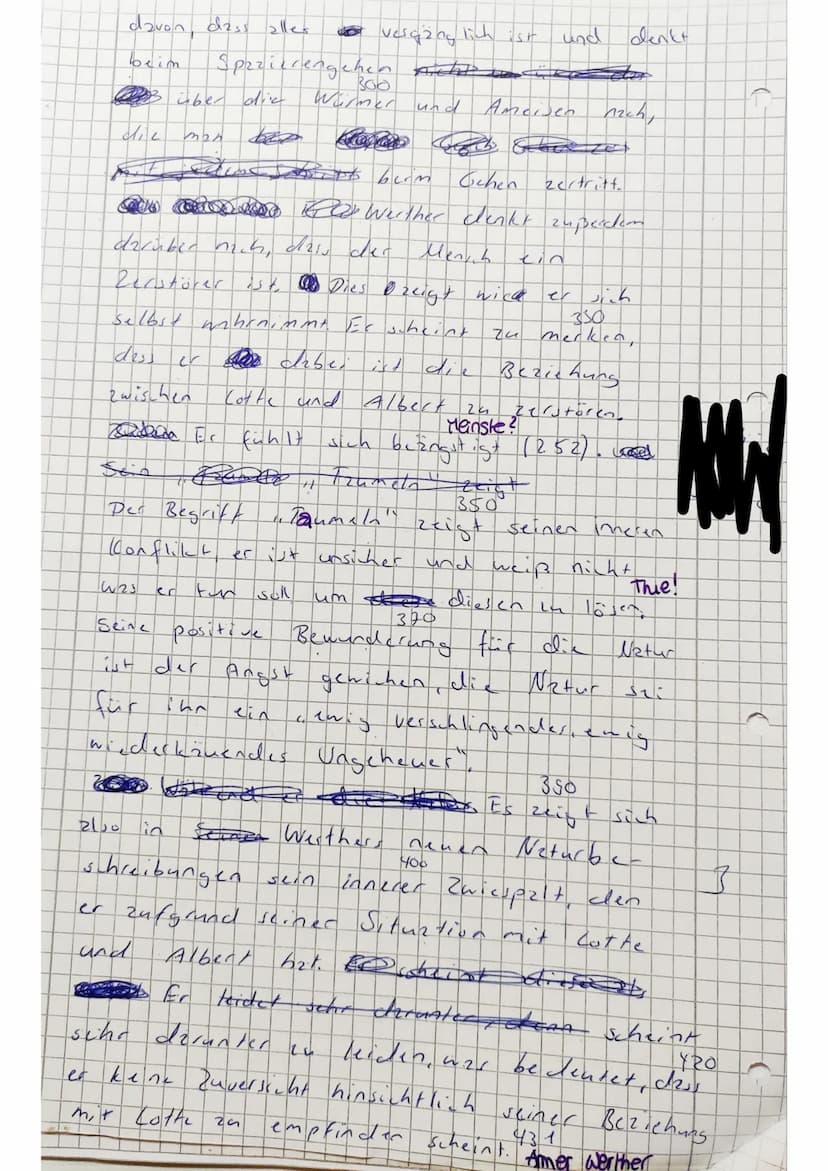 davon, dass alles vergänglich ist und denkt
beim Spazierengehen
300
über die Würmer und Ameisen nach,
die man
beim Gehen zertritt.
Werther denkt außerdem
darüber nach, dass der Mensch ein
Zerstörer ist. Dies zeigt wie er sich
350
selbst wahrnimmt. Er scheint zu merken,
dass er dabei ist die Beziehung
zwischen Lotte und Albert zu zerstören.
Er fühlt sich beängstigt (Z 52).
Sein "Taumeln" zeigt
350
Der Begriff "Taumeln" zeigt seinen inneren
Konflikt, er ist unsicher und weiß nicht
True!
was er tun soll um diesen zu lösen.
370
Seine positive Bewunderung für die Natur
ist der Angst gewichen, die Natur sei
für ihn ein "ewig verschlingendes, ewig
wiederkäuendes Ungeheuer".
390
Es zeigt sich
also in Werthers neuen Naturbe-
400
schreibungen sein innerer Zwiespalt, den
er aufgrund seiner Situation mit Lotte
3
und Albert hat.
Er leidet sehr darunter, denn scheint
sehr darunter zu leiden, was bedeutet, dass
420
er keine Zuversicht hinsichtlich seiner Beziehung
mit Lotte zu empfinden scheint.
431
Armer Werther